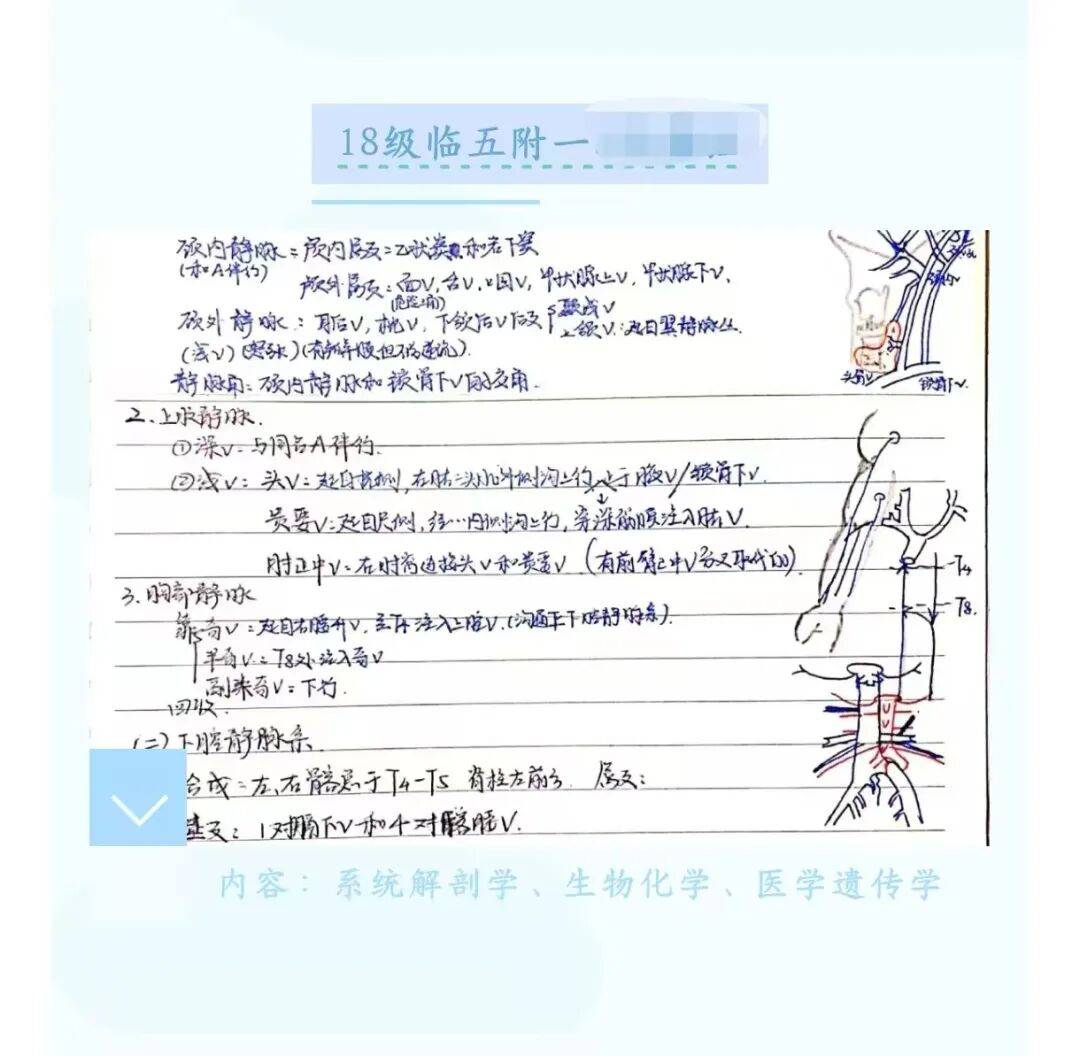 18级临五附一
颈内静脉：颅内属支：乙状窦和岩下窦
(和A伴行)
颅外属支：面V，舌V，咽V，甲状腺上V，甲状腺下V.
(危险三角)
颈外静脉：耳后V，枕V，下颌后V后支
颞浅V
上颌V：起自翼静脉丛
(浅V)
静脉角：颈内静脉和锁骨下V的交角.
头臂V
锁骨下V.
2.上肢静脉.
①深V：与同名A伴行.
②浅V：头V：起自桡侧，在肱二头肌外侧沟上行，止于腋V/锁骨下V.
贵要V：起自尺侧，经…内侧沟上行，穿深筋膜注入肱V.
肘正中V：在肘窝连接头V和贵要V (有前臂正中V分叉取代的).
T4
T8.
3.胸部静脉
奇V：起自右腰升V，至T4注入上腔V.(沟通上下腔静脉系).
半奇V：T8处注入奇V
副半奇V：下行.
回收.
(二)下腔静脉系.
合成：左、右髂总于T4-T5 脊柱右前方. 属支：
1对膈下V和4对腰V.
内容：系统解剖学、生物化学、医学遗传学